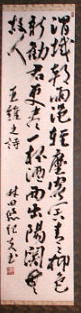 渭城朝雨浥輕塵客舎青々柳色
新勧君更盡一杯酒西出陽関無
故人
王維之詩 林田悠紀夫書